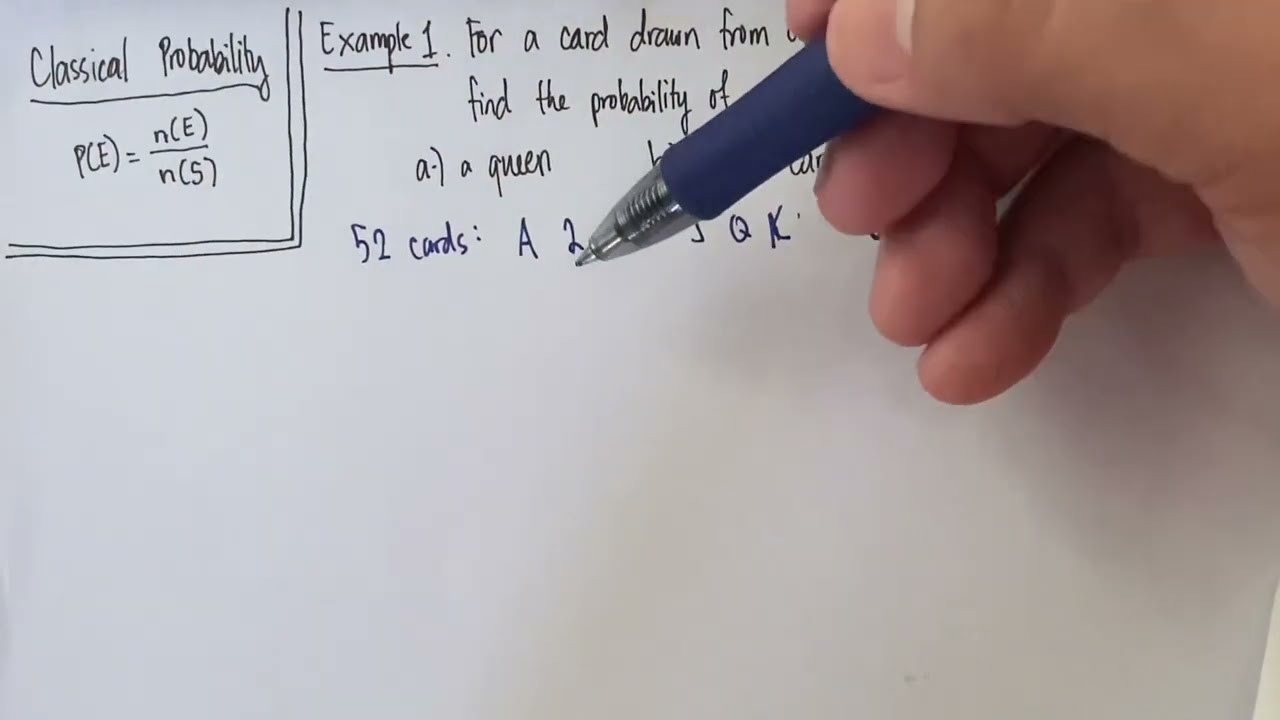 Classical Probability
P(E) = n(E) / n(S)
Example 1. For a card drawn from
find the probability of
a.) a queen
52 cards: A 2 J Q K